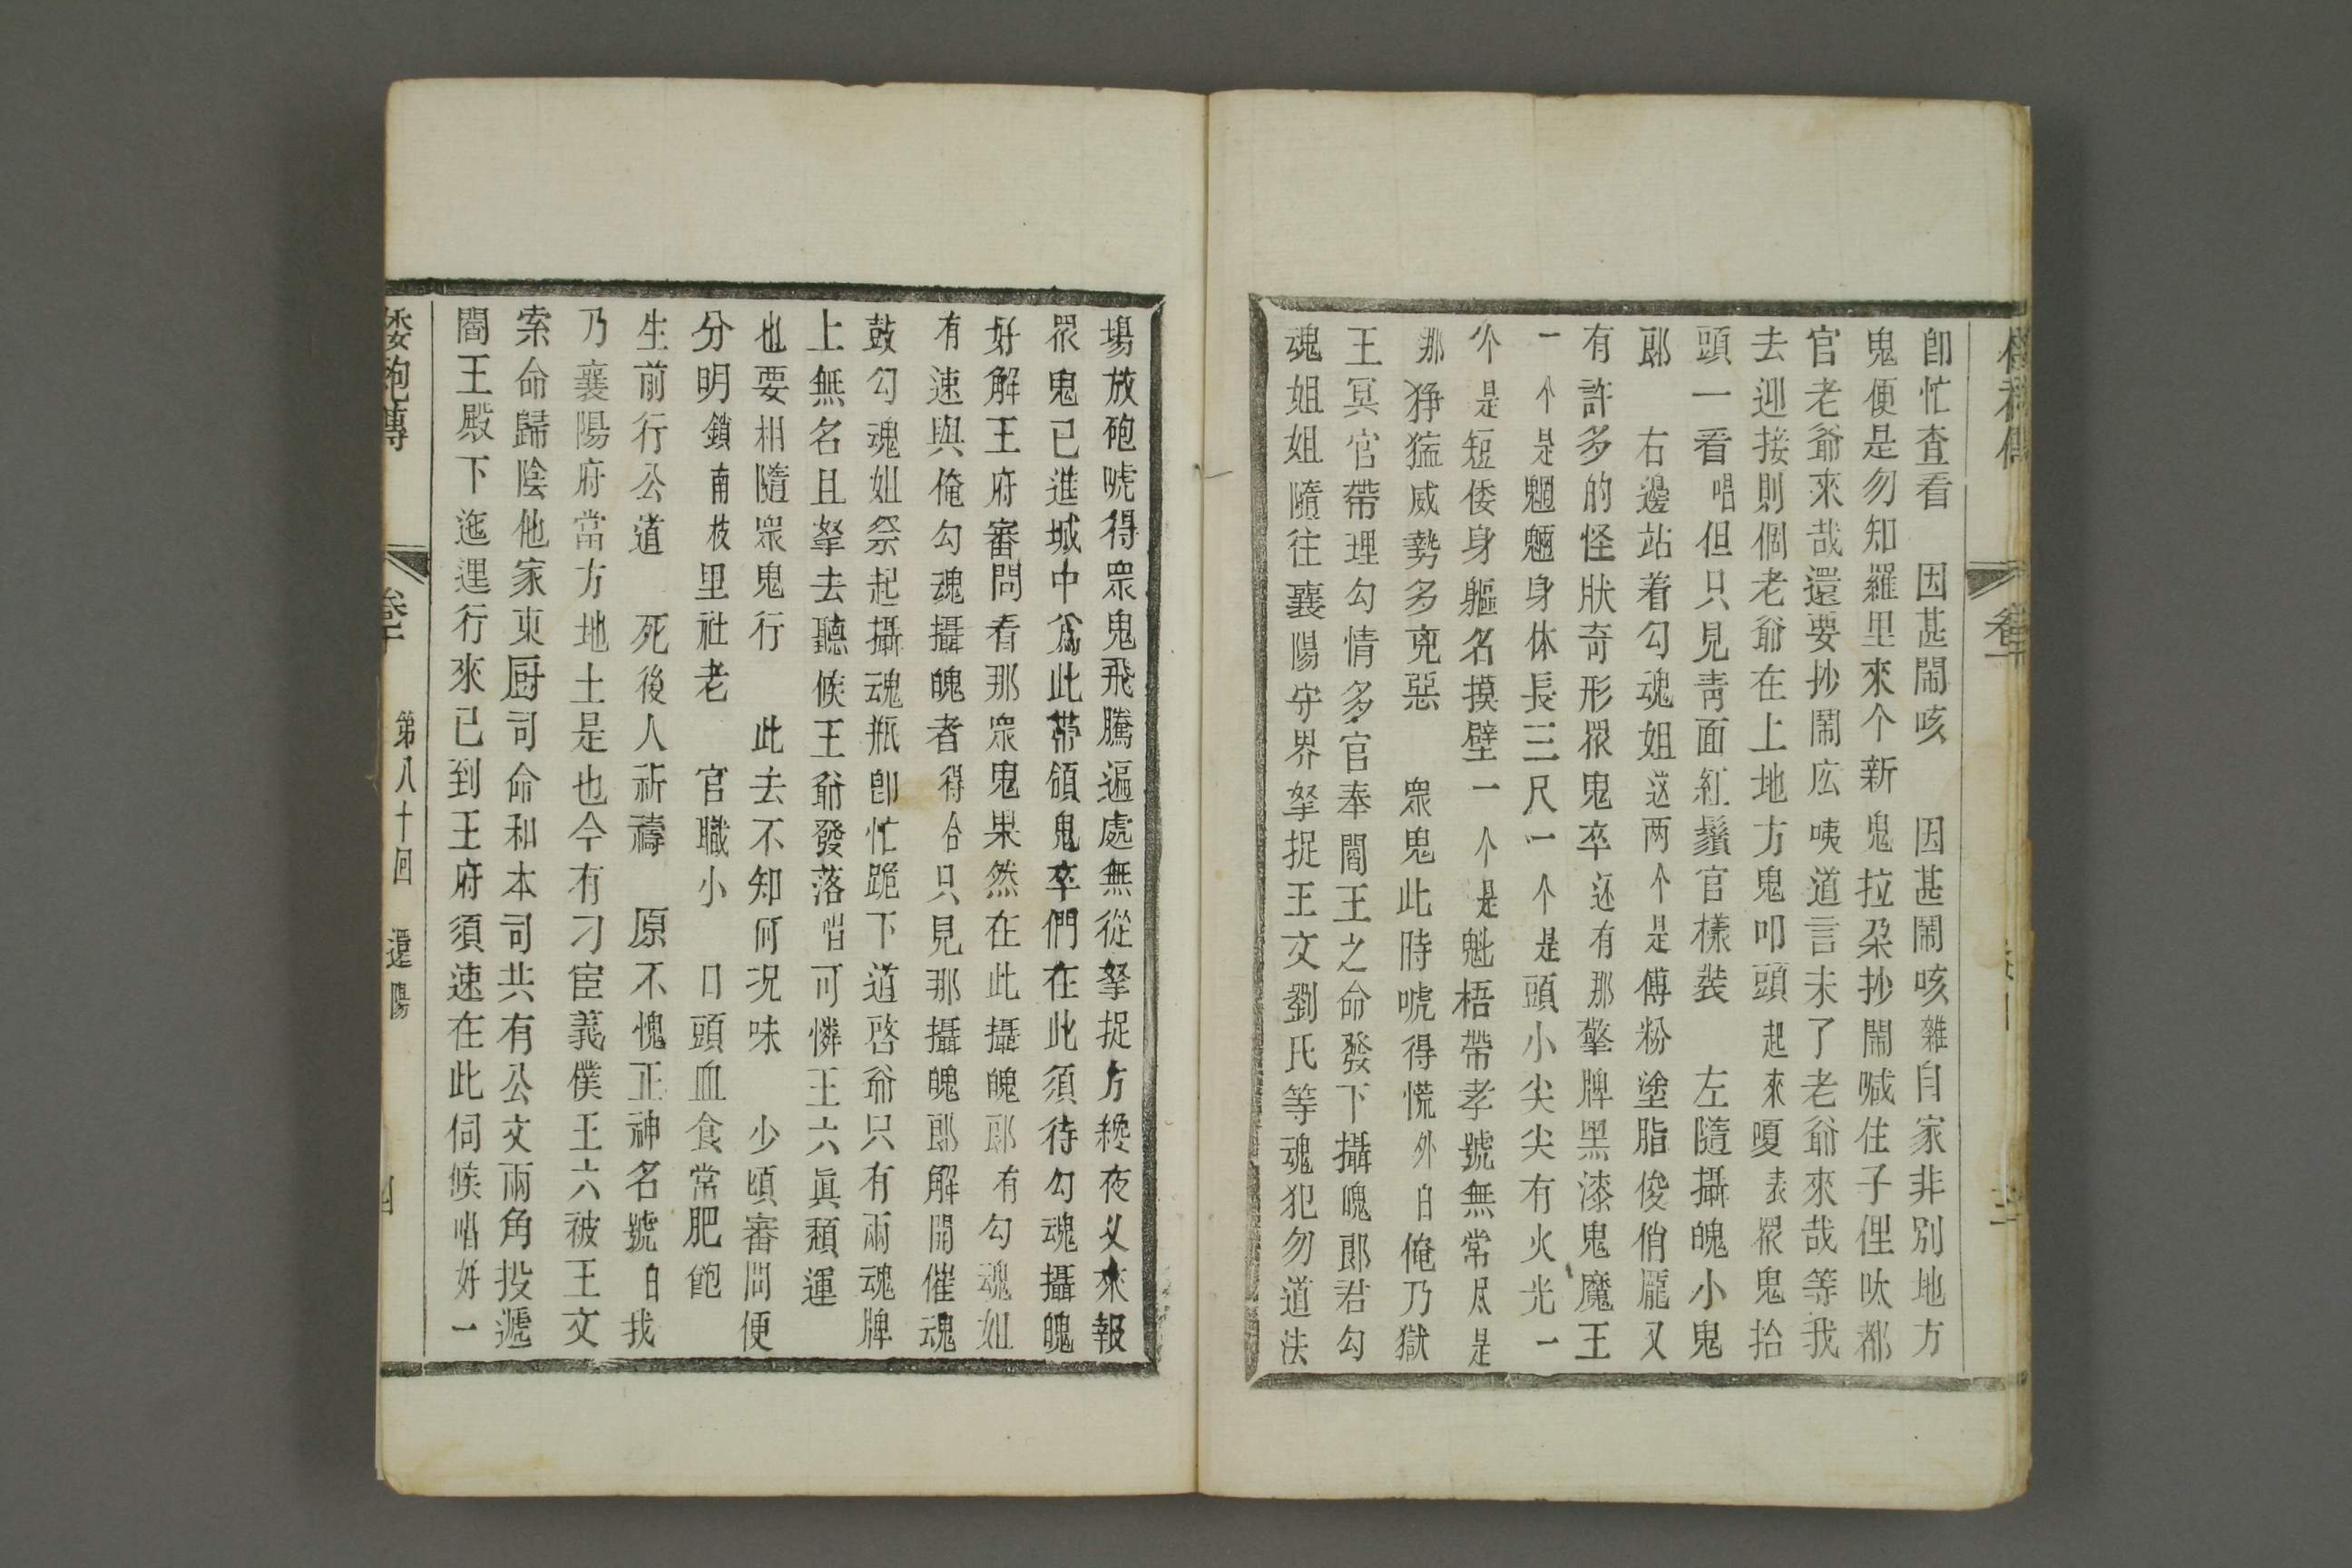 卽忙査看　因甚鬧咳　因甚鬧咳雜自家非別地方
鬼便是勿知羅里來个新鬼拉朶抄鬧喊住子俚呔都
官老爺來哉還要抄鬧庅咦道言未了老爺來哉等我
去迎接則個老爺在上地方鬼叩頭起來嗄表衆鬼抬
頭一看唱但只見靑面紅鬚官樣裝　左隨攝魄小鬼
郎　右邊站着勾魂姐这两个是傅粉塗脂俊俏龎又
有許多的怪狀奇形衆鬼卒还有那擎牌黑漆鬼魔王
一个是魍魎身体長三尺一个是頭小尖尖有火光一
个是短倭身軀名摸壁一个是魁梧帶孝號無常尽是
那猙猛威勢多兇惡　衆鬼此時唬得慌外白俺乃獄
王冥官帶理勾情多官奉閻王之命發下攝魄郞君勾
魂姐姐隨往襄陽守界拏捉王文劉氏等魂犯勿道法
場放砲唬得衆鬼飛騰遍處無從拏捉方纔夜乂來報
衆鬼已進城中爲此帶領鬼卒們在此須待勾魂攝魄
好解王府審問看那衆鬼果然在此攝魄郎有勾魂姐
有速與俺勾魂攝魄者得合只見那攝魄郎解開催魂
鼓勾魂姐祭起攝魂瓶卽忙跪下道啓爺只有兩魂牌
上無名且拏去聽候王爺發落唱可憐王六眞頹運
也要相隨衆鬼行　此去不知何況味　少頃審問便
分明鎖南枝里社老　官職小　口頭血食常肥飽
生前行公道　死後人祈禱　原不愧正神名號白我
乃襄陽府當方地土是也今有刁宦義僕王六被王文
索命歸陰他家東厨司命和本司共有公文兩角投遞
閻王殿下迤逕行來已到王府須速在此伺候唱好一
倭袍傳　第八十回　還陽